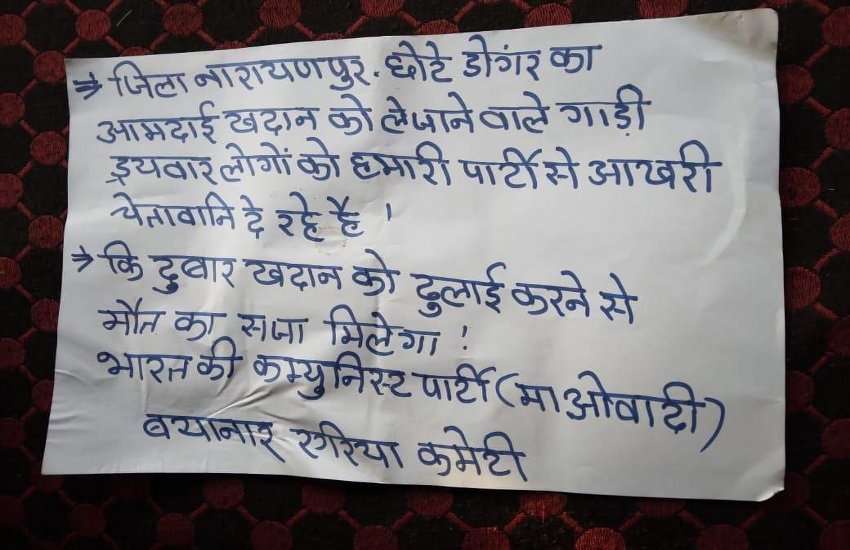 ⇒ जिला नारायणपुर. छोटे डोगंर का
आमदाई खदान को लेजाने वाले गाड़ी
ड्रयवार लोगों को हमारी पार्टी से आखरी
चेतावानि दे रहे है !
⇒ कि दुवार खदान को ढुलाई करने से
मौत का सजा मिलेगा !
भारत की कम्युनिस्ट पार्टी (माओवादी)
बयानार एरिया कमेटी